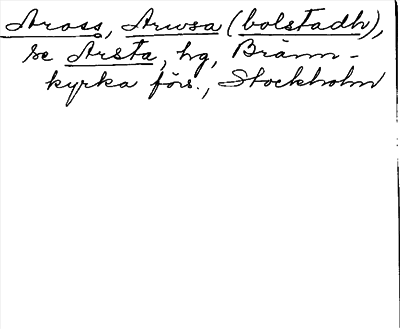 Aross, Arwsa (bolstadh),
se Årsta, hg, Bränn-
kyrka förs., Stockholm